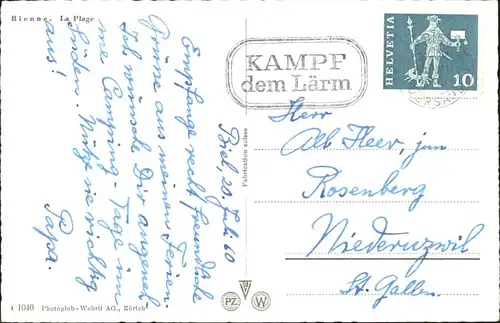 Bienne. La Plage
Biel, 20. Juli 60
Empfange recht freundliche
Grüsse aus meinen Ferien
Ich wünsche Dir angenehme
Camping-Tage im
Süden. Nütz sie richtig
aus!
Papa.
4 1040 Photoglob-Wehrli AG., Zürich
Fabrication suisse
PZ
W
KAMPF
dem Lärm
HELVETIA
10
Herr
Alb Heer, jun
Rosenberg
Niederuzwil
St. Gallen